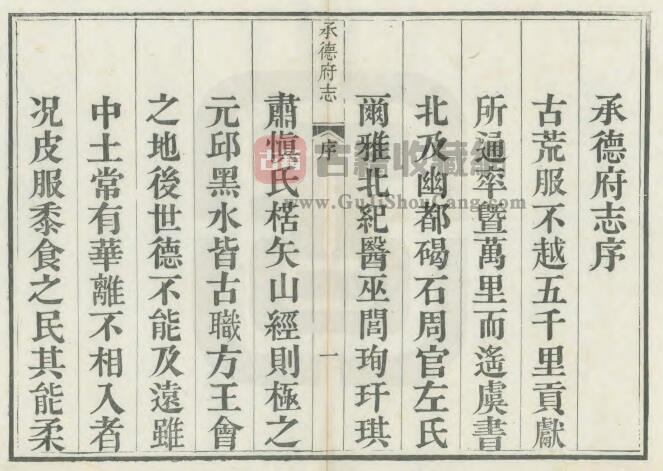 承德府志序
古荒服不越五千里貢獻
所通率暨萬里而遙虞書
北及幽都碣石周官左氏
爾雅北紀醫巫閭珣玗琪
承德府志
序
一
肅慎氏楛矢山經則極之
元邱黑水皆古職方王會
之地後世德不能及遠雖
中土常有華離不相入者
況皮服黍食之民其能柔
古籍收藏
www.GuJiShouCang.com